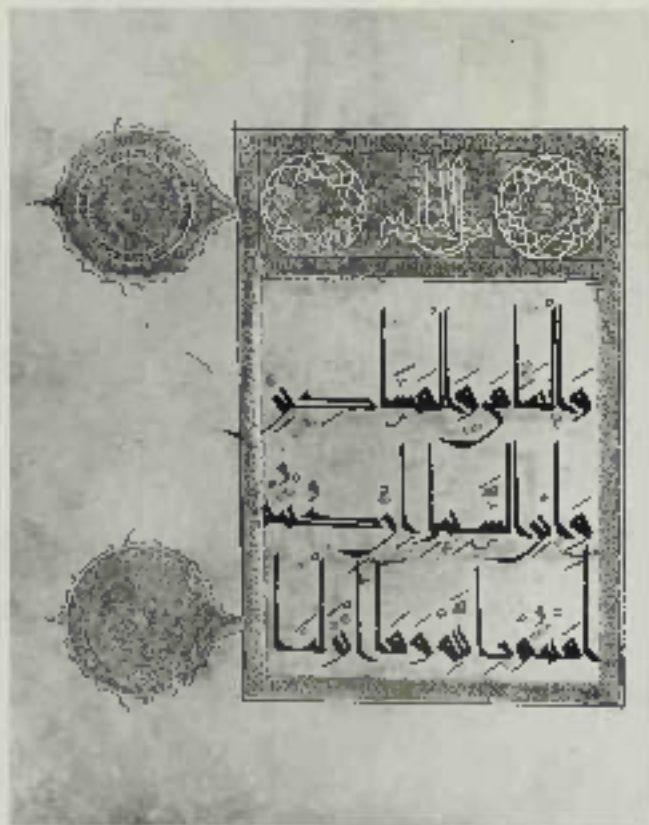 واليتامى والمساكين
وابن السبيل ان كنتم
امنتم بالله وما انزلنا